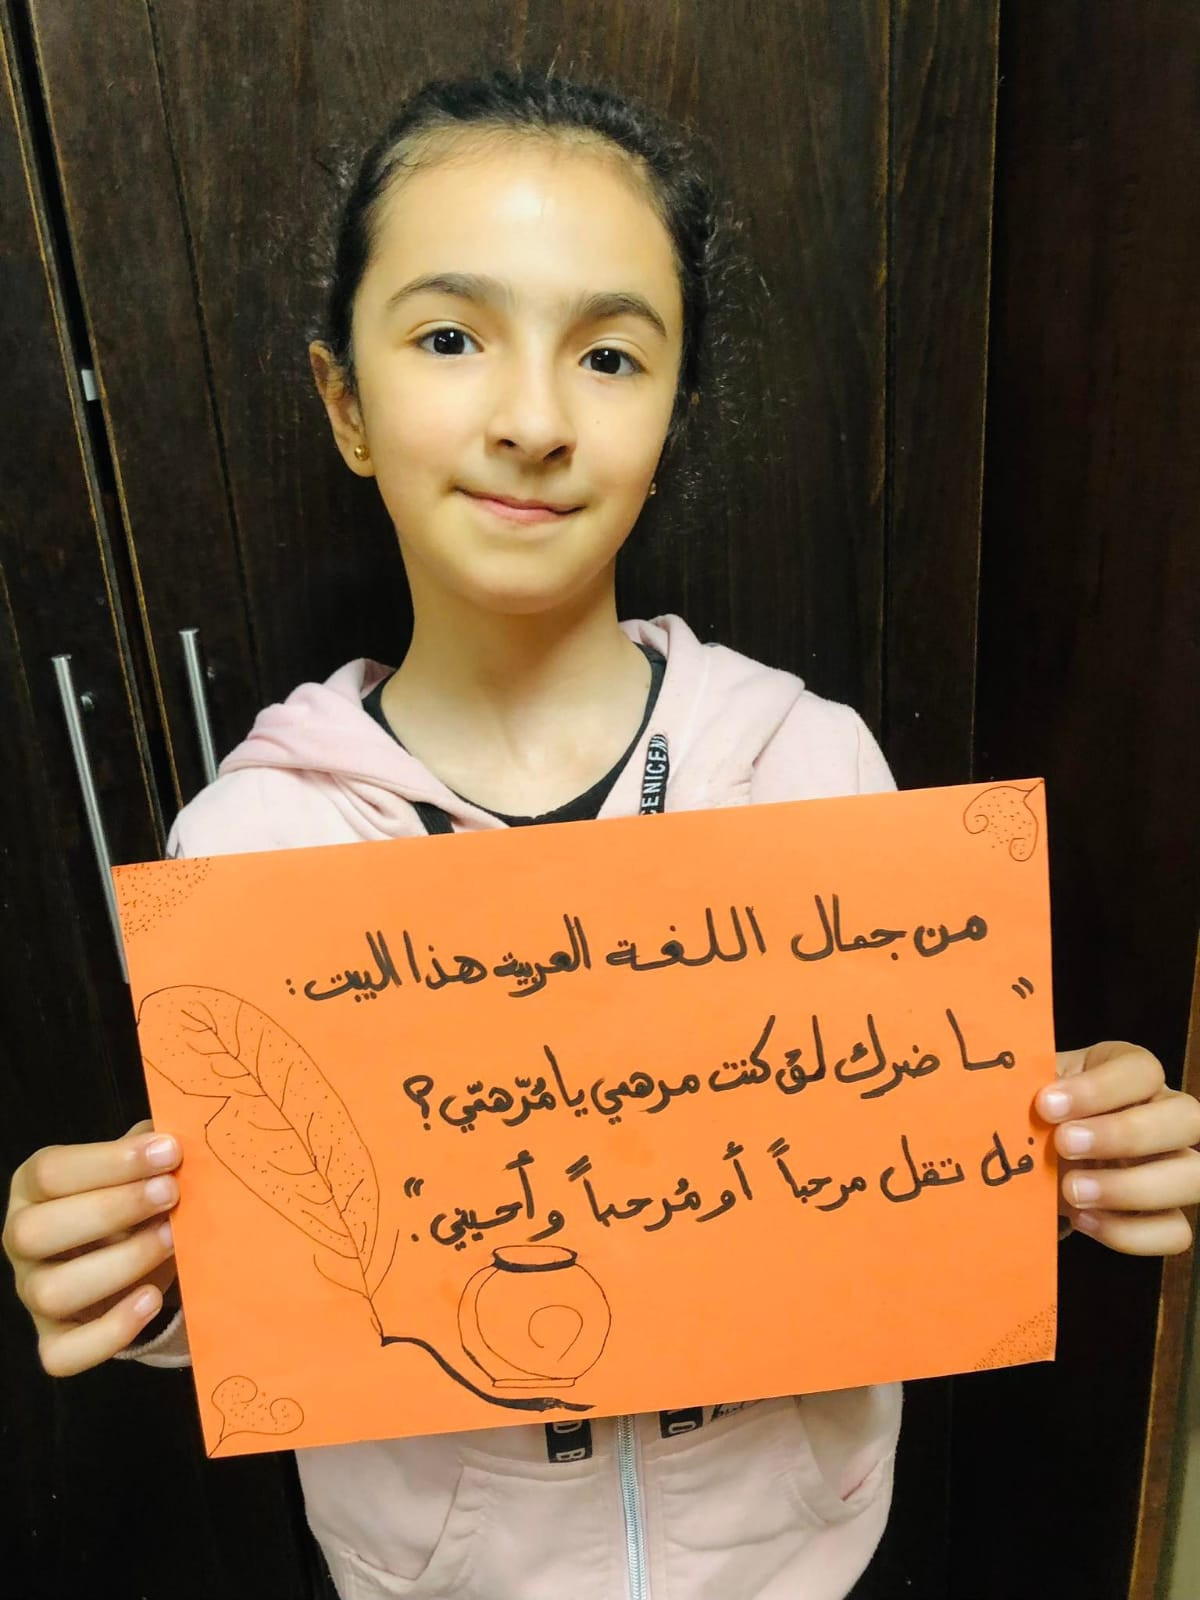 من جمال اللغة العربية هذا البيت:
"ما ضرك لو كنت مرهمي يا مُرّهمّي؟
فل تقل مرحباً أو مُرحباً وأحييني."
CENICEN
D B